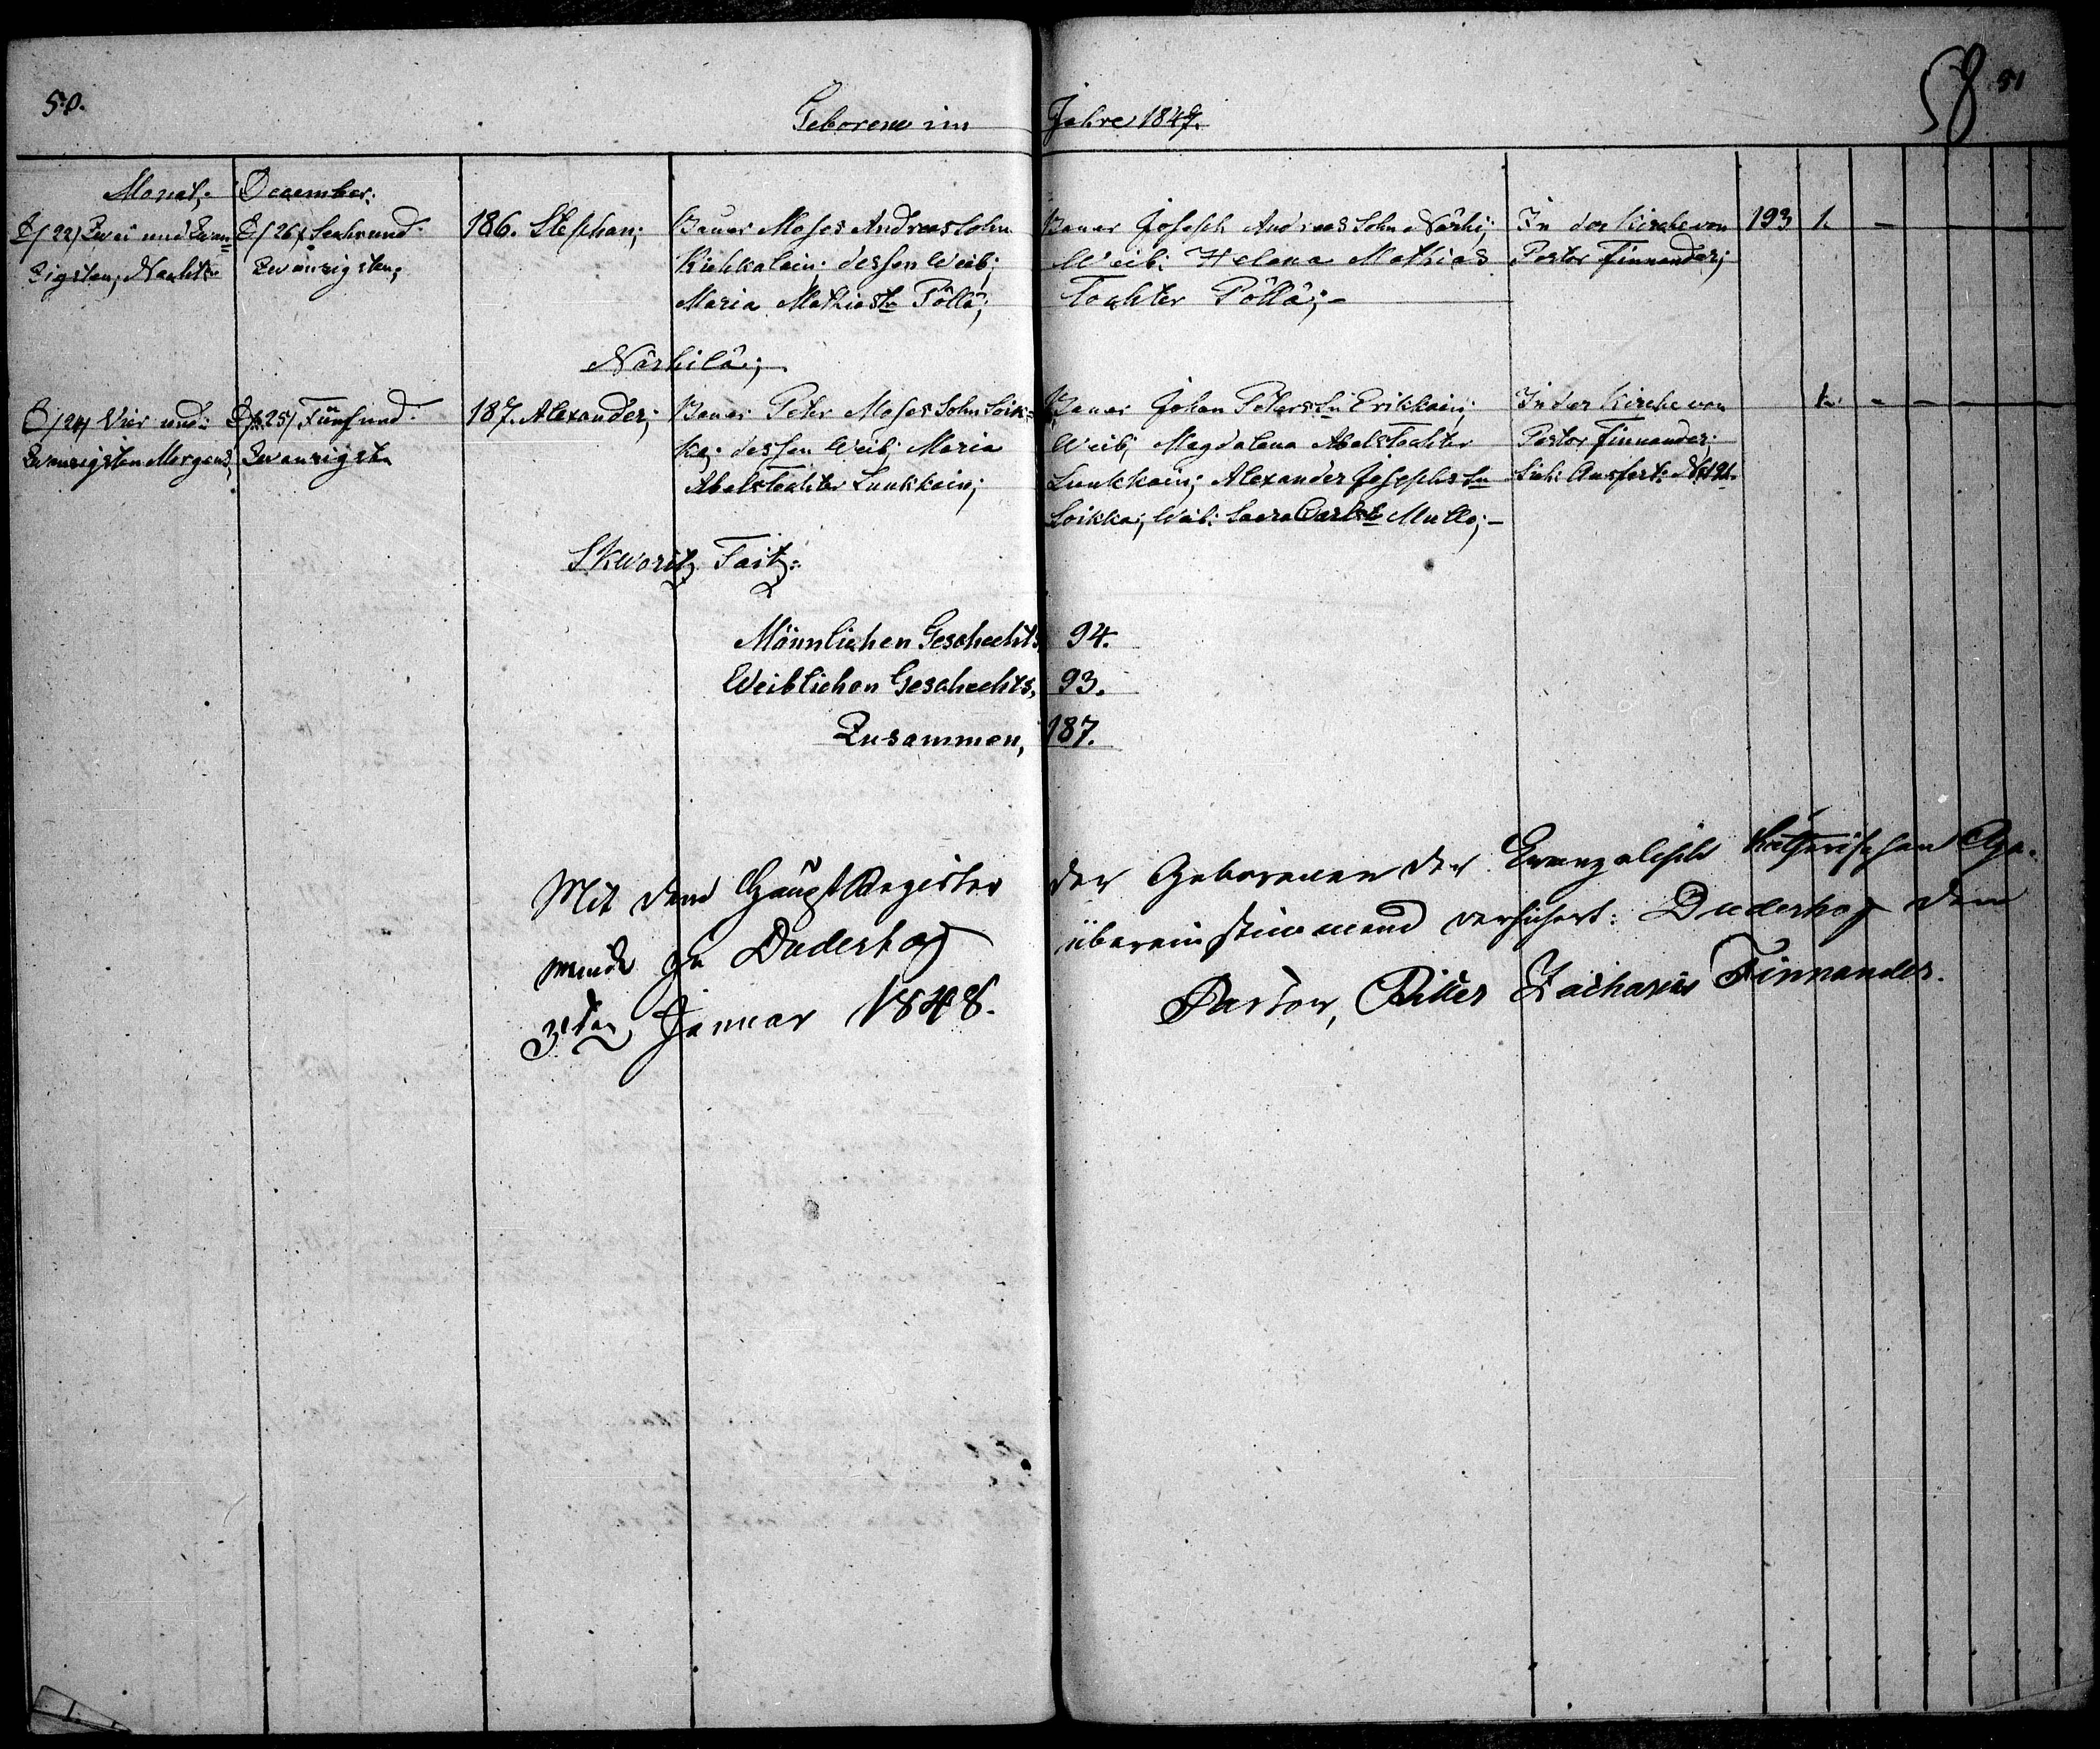 50.
Geboren im Jahre 1847.
58
51
Monat, December:
D/22/ Zwei und Zwan=
zigsten, Nachts
D/26/ Sechsund
Zwanzigsten;
186. Stephan;
Bauer Moses Andreas Sohn
Kiehkalain; dessen Weib;
Maria Mathiastr Pöllä;
Bauer Joseph Andreas Sohn Närhi;
Weib: Helena Mathias
Tochter Pöllä;-
In der Kirche von
Pastor Finnander;
193 1. - - - - -
Närhilä;
D/24/ Vier und
Zwanzigsten Morgens,
D/25/ Fünfund
Zwanzigst
187. Alexander;
Bauer Peter Moses Sohn Soik=
ka; dessen Weib; Maria
Abelstochter Luukkain;
Bauer Johan Peters Sn Erikkain;
Weib; Magdalena Abelstochter
Luukkain; Alexander Josephs Sn
Soikka; Weib: Saara Carlst Mullo;-
In der Kirche von
Pastor Finnander;
1. - - - - -
Skworitz Taitz:
Männlichen Geschechts, 94.
Weiblichen Geschechts, 93.
Zusammen, 187.
Mit dem Haupt Register der Geborenen der Evangelisch Lutherischen Ge-
meinde zu Duderhof übereinstimmend versichert: Duderhof den
3ten Januar 1848. Pastor, Ritter Zacharias Finnander.
1.